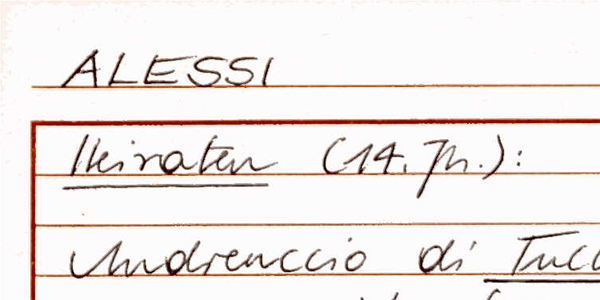 ALESSI
Heiraten (14. Jh.):
Andreuccio di Tucc